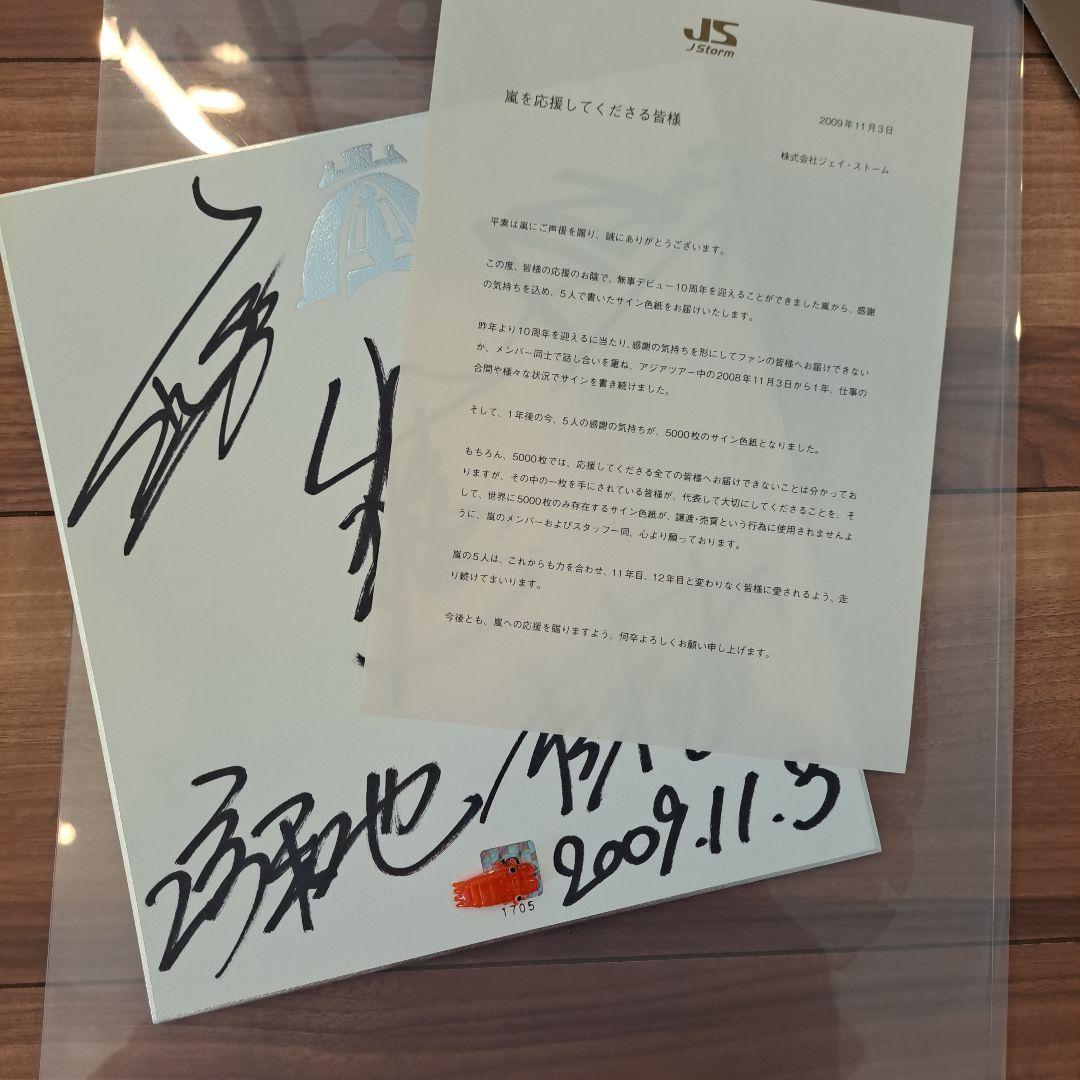 JS
J Storm
嵐を応援してくださる皆様
2009年11月3日
株式会社ジェイ・ストーム
平素は嵐にご声援を賜り、誠にありがとうございます。
この度、皆様の応援のお陰で、無事デビュー10周年を迎えることができました嵐から、感謝
の気持ちを込め、5人で書いたサイン色紙をお届けいたします。
昨年より10周年を迎えるに当たり、感謝の気持ちを形にしてファンの皆様へお届けできない
か、メンバー同士で話し合いを重ね、アジアツアー中の2008年11月3日から1年、仕事の
合間や様々な状況でサインを書き続けました。
そして、1年後の今、5人の感謝の気持ちが、5000枚のサイン色紙となりました。
もちろん、5000枚では、応援してくださる全ての皆様へお届けできないことは分かってお
りますが、その中の一枚を手にされている皆様が、代表して大切にしてくださることを、そ
して、世界に5000枚のみ存在するサイン色紙が、譲渡・売買という行為に使用されませんよ
うに、嵐のメンバーおよびスタッフ一同、心より願っております。
嵐の5人は、これからも力を合わせ、11年目、12年目と変わりなく皆様に愛されるよう、走
り続けてまいります。
今後とも、嵐への応援を賜りますよう、何卒よろしくお願い申し上げます。
和也
2009.11.3
1705